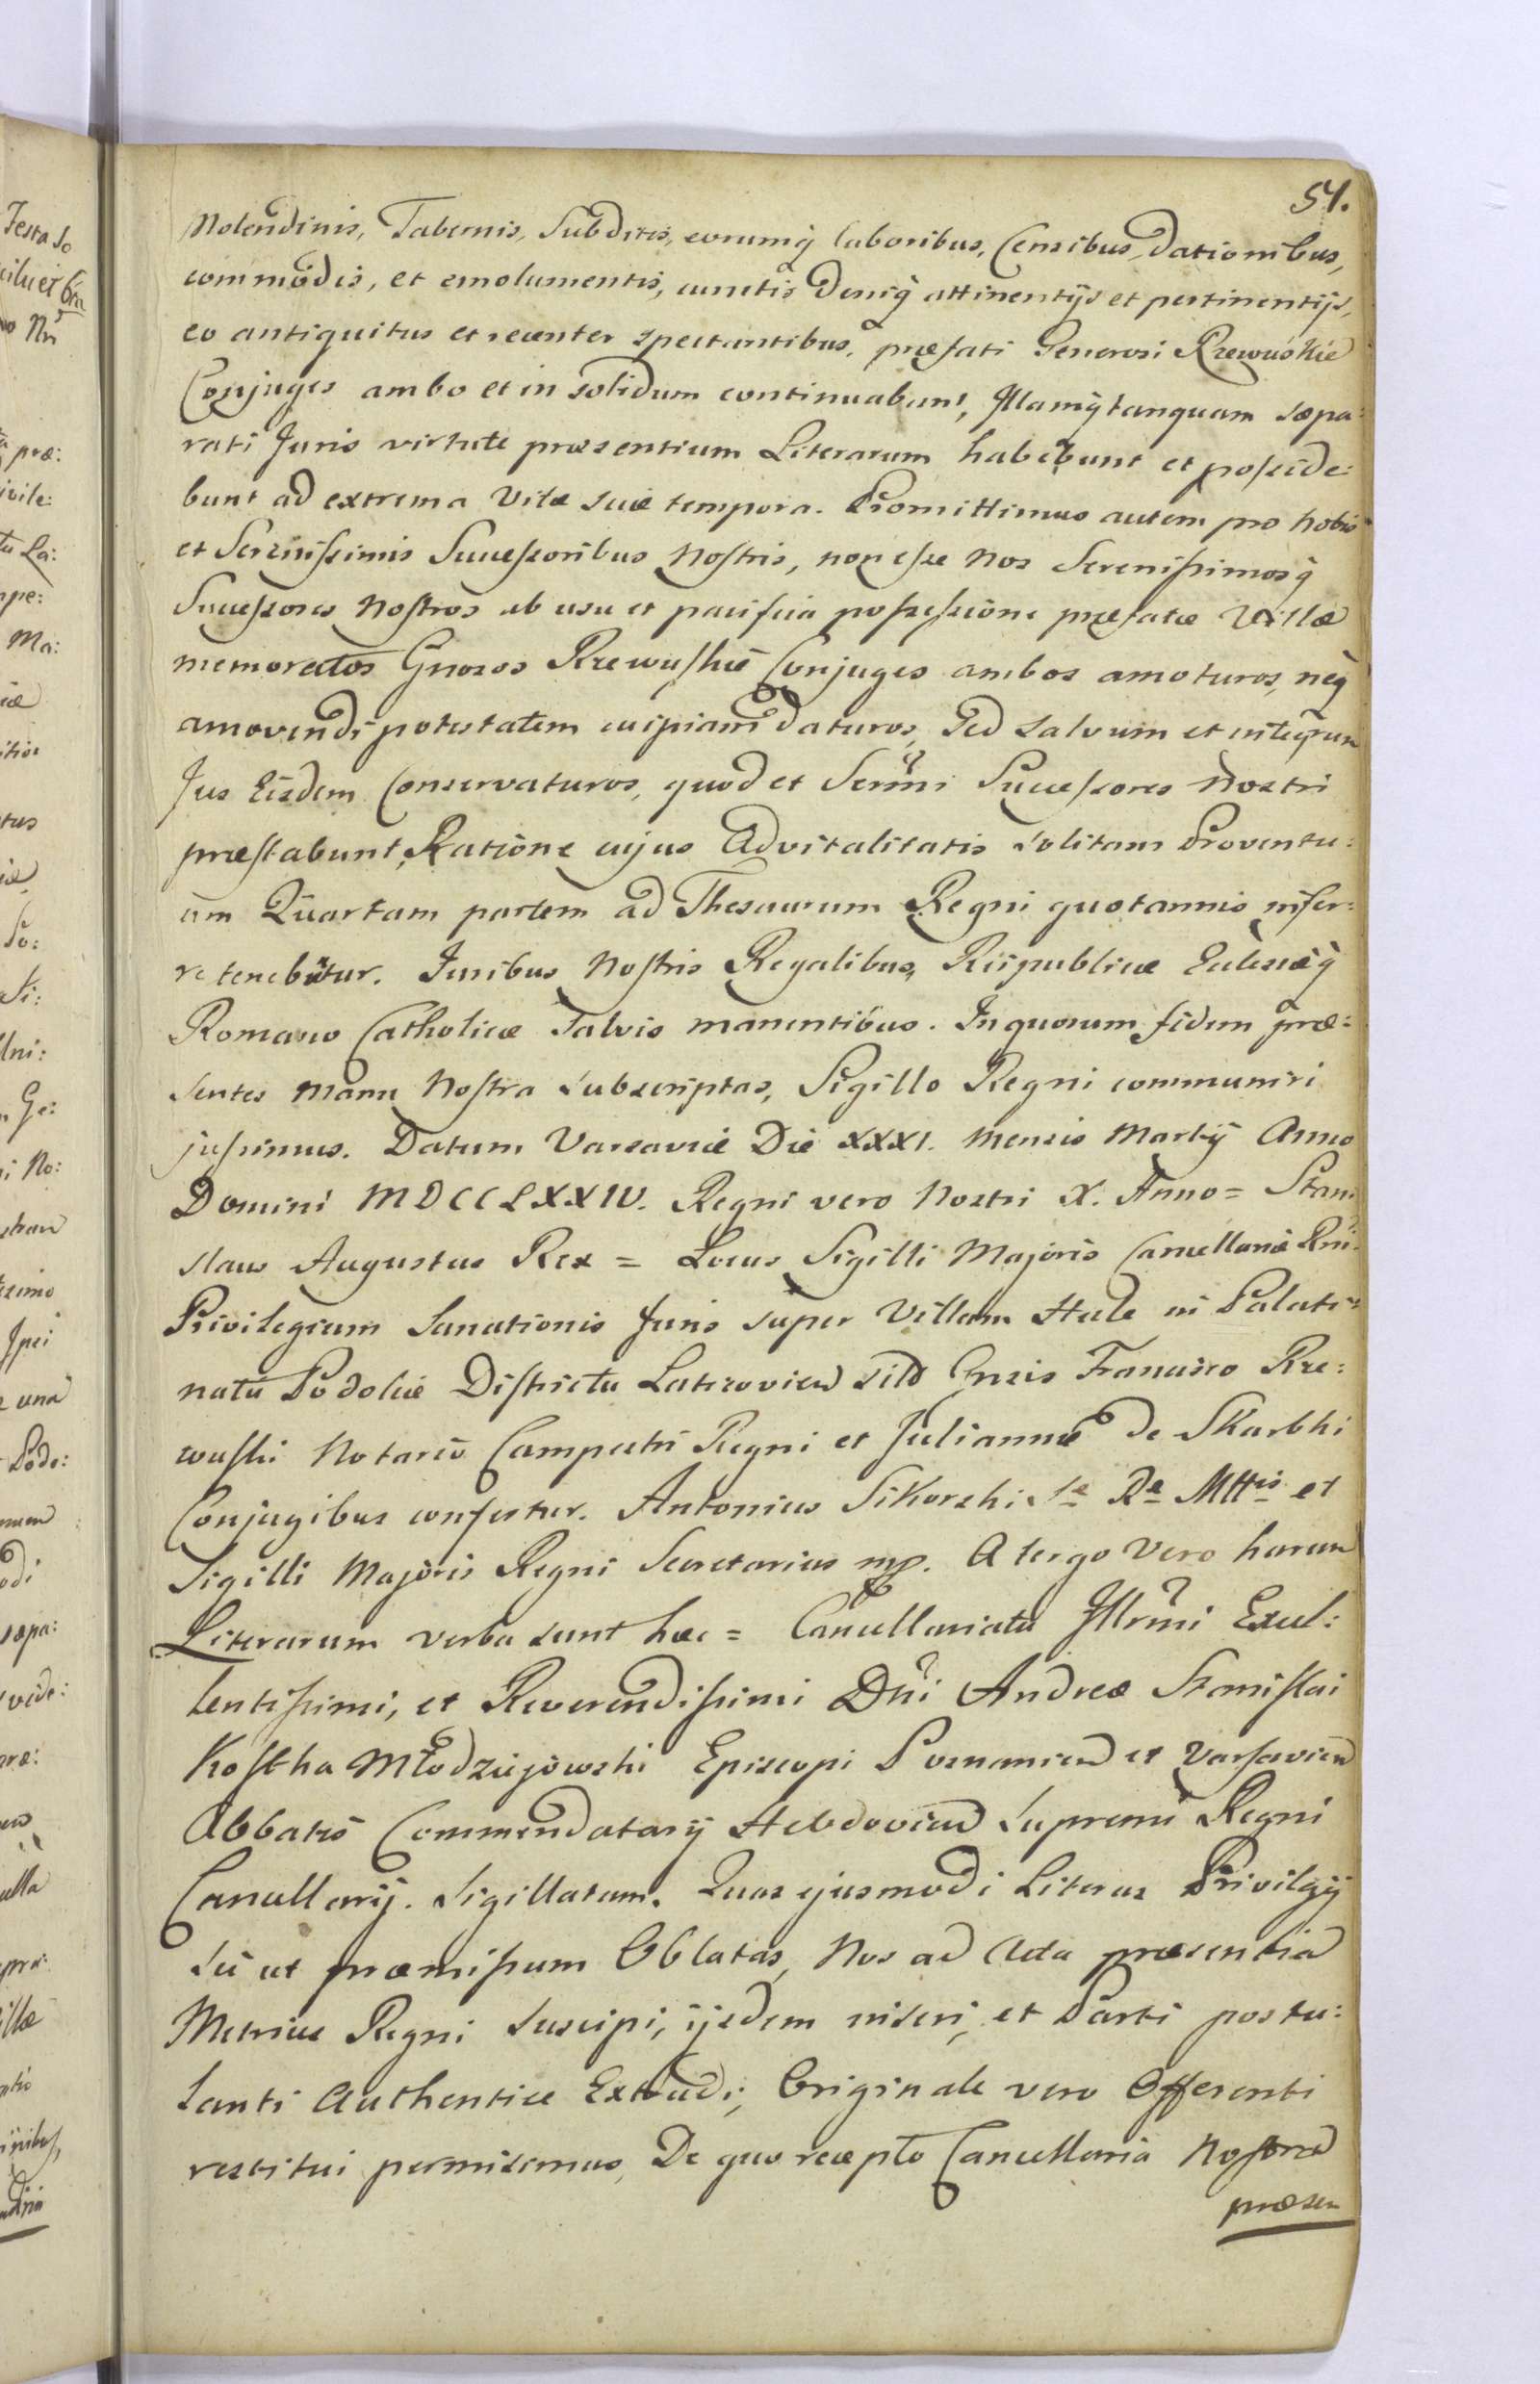 54.
Molendinis, Tabernis, Subditis, eorumq̃ laboribus, Censibus, dationibus,
commodis, et emolumentis, cunctis deniq̃ attinentijs et pertinentijs,
eo antiquitus et recenter spectantibus, præfati Generosi Rzewuskie
Conjuges ambo et in solidum continuabunt, Illamq̃ tanquam sæpa:
rati Juris virtute præsentium Literarum habebunt et posside:
bunt ad extrema Vitæ suæ tempora. Promittimus autem pro Nobis
et Serenissimis Successoribus Nostris, non esse Nos Serenissimosq̃
Successores Nostros ab usu et pacifica possessione præfatæ Villæ
memoratos Gnosos Rzewuskie Conjuges ambos amoturos, neq̃
amovendi potestatem cuipiam daturos, Sed salvum et integrum
Jus Eisdem Conservaturos, quod et Sermi Successores Nostri
præstabunt, Ratione cujus Advitalitatis solitam Proventu:
um Quartam partem ad Thesaurum Regni quotannis infer:
re tenebuntur. Juribus Nostris Regalibus, Reipublicæ Eclesiæq̃
Romano Catholicæ Salvis manentibus. In quorum fidem præ:
sentes Manu Nostra subscriptas, Sigillo Regni communiri
jussimus. Datum Varsaviæ Die XXXI. Mensis Martij Anno
Domini MDCCLXXIV. Regni vero Nostri X. Anno = Stani
slaus Augustus Rex = Locus Sigilli Majoris Cancellariæ Rni.
Privilegium Sanationis Juris super Villam Hule in Palati:
natu Podoliæ Districtu Laticovien sitd Gnsis Francisco Rze:
wuski Notario Campestri Regni et Juliannæ de Skarbki
Conjugibus confertur. Antonius Sikorski Sæ Ræ Mttis et
Sigilli Majoris Regni Secretarius mp. A tergo Vero harum
Literarum verba sunt hæc = Cancellariatu Illrmi Excel:
lentissimi, et Reverendissimi Dni Andreæ Stanislai
Kostka Młodziejowski Episcopi Posnanien et Varsavien
Abbatis Commendatarij Hebdovien Supremi Regni
Cancellarij. Sigillatum. Quas ejusmodi Literas Privilgij
Sic ut præmissum Oblatas, Nos ad Acta præsentia
Metrices Regni Suscipi, ijsdem inseri, et Parti postu:
lanti Authentice Extradi, Originale vero Offerenti
restitui permisimus, De quo recepto Cancellaria Nostra
præsen